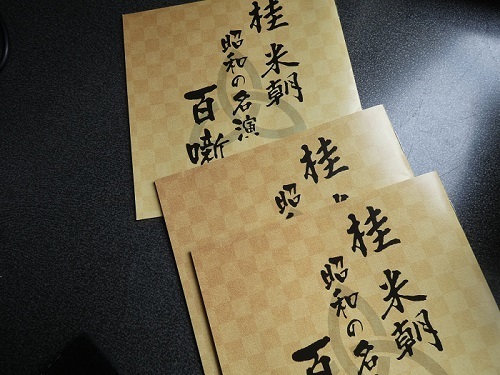 桂米朝
昭和の名演
百噺
桂
昭
桂米朝
昭和の名
百